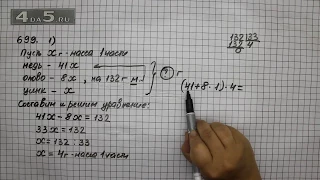 4DA5.RU
699. 1)
Пусть x г - масса 1 части
медь - 41x
олово - 8x, на 132 г м.
цинк - x
? г
Составим и решим уравнение:
41x - 8x = 132
33x = 132
x = 132 : 33
x = 4 г - масса 1 части
132 33
132 4
0
(41+8+1)·4=